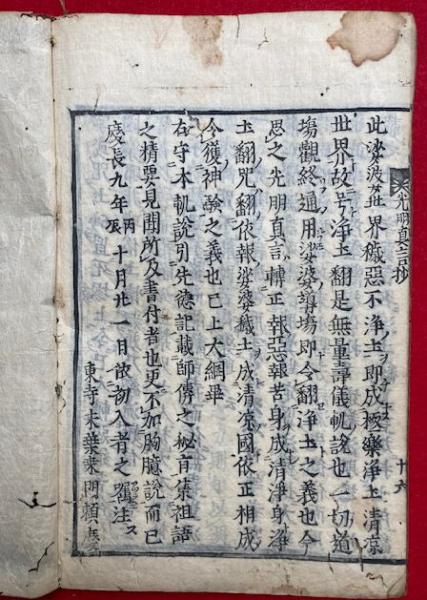 光明真言抄
十六
此娑婆世界穢惡不淨土即成極樂淨土清凉
世界故云淨土翻是無量壽儀軌說也一切道
場觀終通用娑婆導場即令翻淨土之義也今
思之光明真言轉正報惡報苦身成清淨身淨
土翻咒翻依報娑婆穢土成清凉國依正相成
令獲神驗之義也已上大綱畢
右守本軌說引先德記藏師傳之秘旨集祖語
之精要見聞所及書付者也更不加胸臆說而已
慶長九年丙辰十月廿一日依初入者之注ス
東寺末葉桑門頼慶